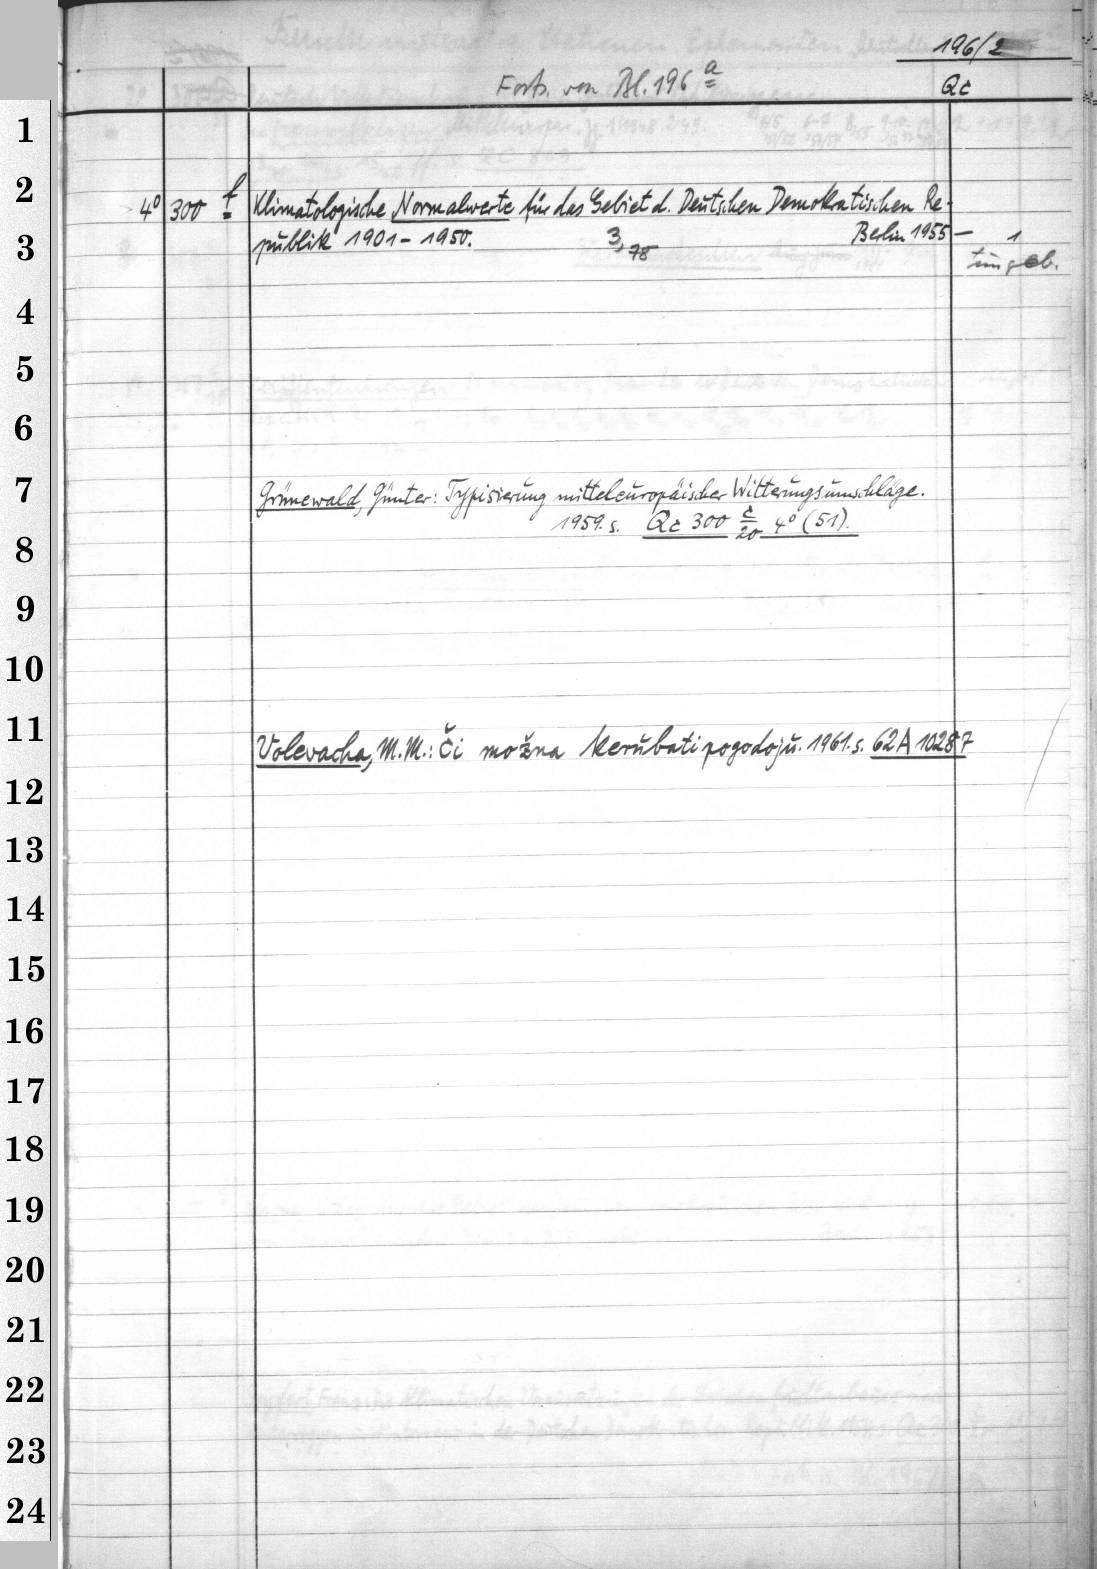 196/2
Forts. von Bl. 196 a
Qc
1
2
4° 300 f Klimatologische Normalwerte für das Gebiet d. Deutschen Demokratischen Re-
3
publik 1901-1950. 3,78 Berlin 1955 — 1
ungeb.
4
5
6
7
Grünewald, Günter: Typisierung mitteleuropäischer Witterungsumschläge.
1959. s. Qc 300 c/20 4° (51).
8
9
10
11
Volevacha, M.M.: Či možna kerubati pogodoju. 1961. s. 62 A 10287
12
13
14
15
16
17
18
19
20
21
22
23
24